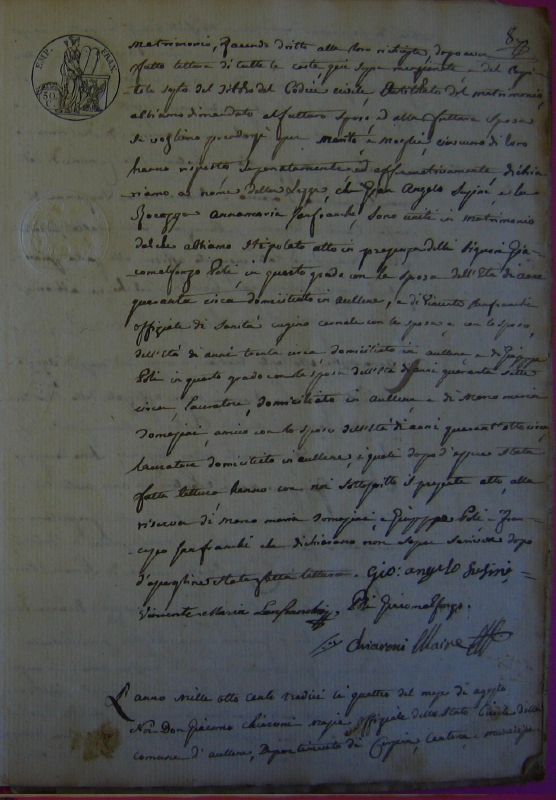 EMP. FRAN.
87
matrimonio, facendo dritto alle loro richieste, dopo aver
fatto lettura di tutte le carte qui sopra menzionate e del Capi
tolo sesto del Titolo del Codice civile Intitolato del matrimonio
abbiamo dimandato al futturo sposo ed alla futtura sposa
Se vogliono prendersi per Marito e moglie, ciascuno di loro
hanno risposto separatamente ed affermativamente dichia
riamo a nome della Legge che Gian Angelo Susini, e la
Annamaria Lanfranchi, sono uniti in matrimonio
del che abbiamo stipolato atto in presenza delli Signori Gia
comalfonzo Poli, in quarto grado con la sposa dell'Età di anni
quaranta circa domiciliato in aullene, e di Vincente Lanfranchi
offiziale di Sanità cugino carnale con la sposa e con lo sposo,
dell'Età di anni trenta circa domiciliato in aullene e di Giuseppe
Poli in quarto grado con la sposa dell'Età di anni quaranta sette
circa, Lavoratore, domiciliato in aullene e di Marco maria
amico con lo sposo dell'età di anni quarant'otto circa,
Lavoratore domiciliato in aullene, i quali dopo d'essere stata
fatta lettura hanno con noi sottoscritto il presente atto, alla
riserva di Marco maria e Giuseppe Poli Fran
cesco Lanfranchi che dichiarano non saper scrivere dopo
stata fatta lettura. Gio: angelo Susini
Vincente Maria Lanfranchi, Poli Giacomalfonzo.
Chiaroni Maire
L'anno mille otto cento tredici li quattro del mese di agosto
Noi Don Giacomo Chiaroni Maire offiziale dello Stato Civile della
comune d'aullene, Dipartimento di Corsica, Cantone